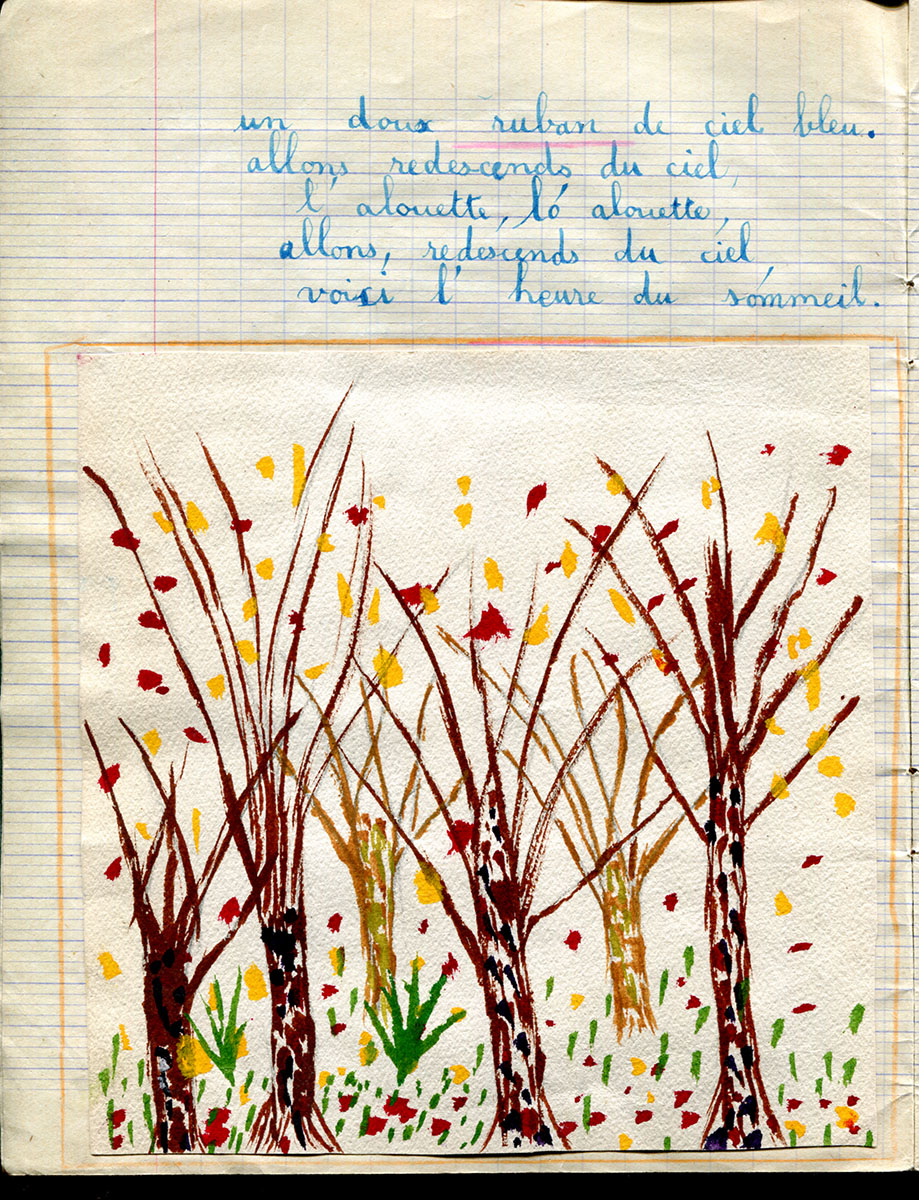 un doux ruban de ciel bleu.
allons redescends du ciel,
l'alouette, l'ó alouette,
allons, redescends du ciel,
voici l'heure du sommeil.